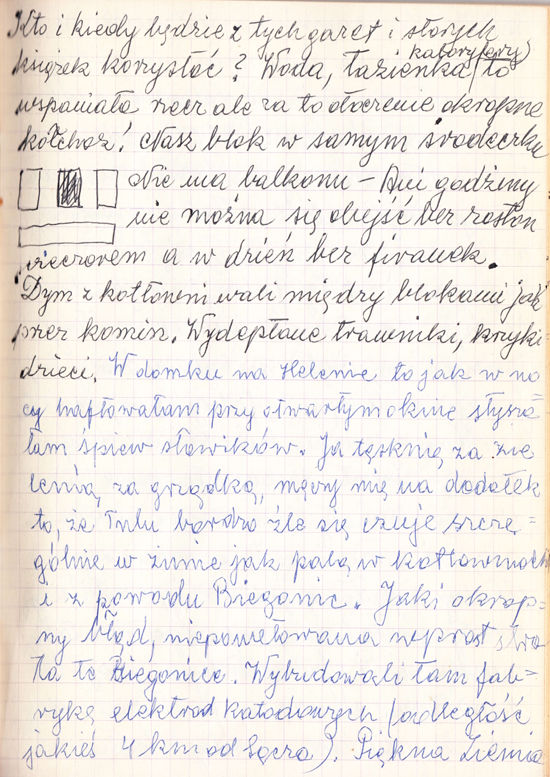 Kto i kiedy będzie z tych garet i starych
kaloryfery)
książek korzystać? Woda, łazienka (to
wspaniała rzecz ale za to otoczenie okropne
kołchoz! Nasz blok w samym środeczku
Nie ma balkonu – Ani godziny
nie można się obejść bez zasłon
wieczorem a w dzień bez firanek.
Dym z kotłowni wali między blokami jak
przez komin. Wydeptane trawniki, krzyki
dzieci. W domku na Helenie to jak w no
cy haftowałam przy otwartym oknie słysza=
łam śpiew słowików. Ja tęsknię za zie
lenią, za grządką, męczy mię na dodatek
to, że Tulu bardzo źle się czuje szcze=
gólnie w zimie jak palą w kotłowniach
i z powodu Biegonic. Jaki okrop=
ny błąd, niepowetowana wprost stra
ta te Biegonice. Wybudowali tam fab=
rykę elektrod katodowych (odległość
jakieś 4 km od Sącza). Piękna Ziemia